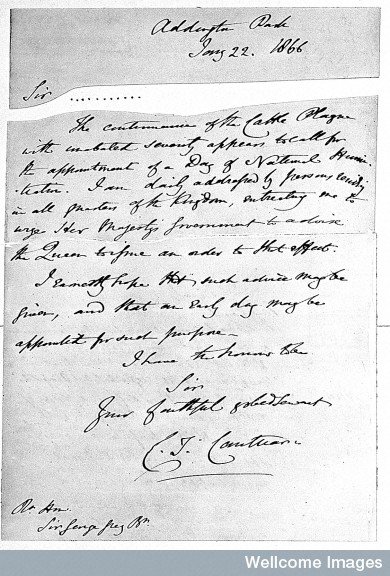 Addington Park
Jany 22. 1866
Sir ..........
The continuance of the Cattle Plague
with unabated severity appears to call for
the appointment of a Day of National Humi-
liation. I am daily addressed by persons
in all quarters of the Kingdom, entreating me to
urge Her Majesty's Government to advise
the Queen to issue an order to that effect.
I earnestly hope that such advice may be
given, and that an early day may be
appointed for such purpose—
I have the honour to be
Sir
Your faithful & obed Servant
C. T. Cantuar:
Rt Hon.
Sir George Grey Bt.
Wellcome Images